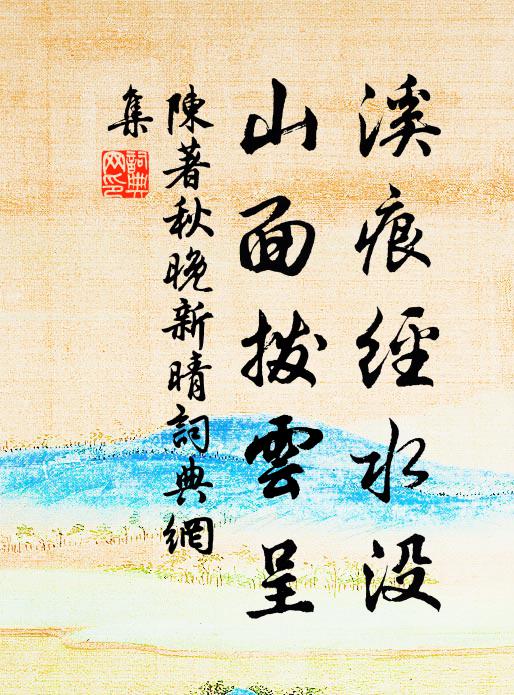 溪痕經水没
山面撥雲呈
陳著秋晚新晴詞典網
集
詞典
网印